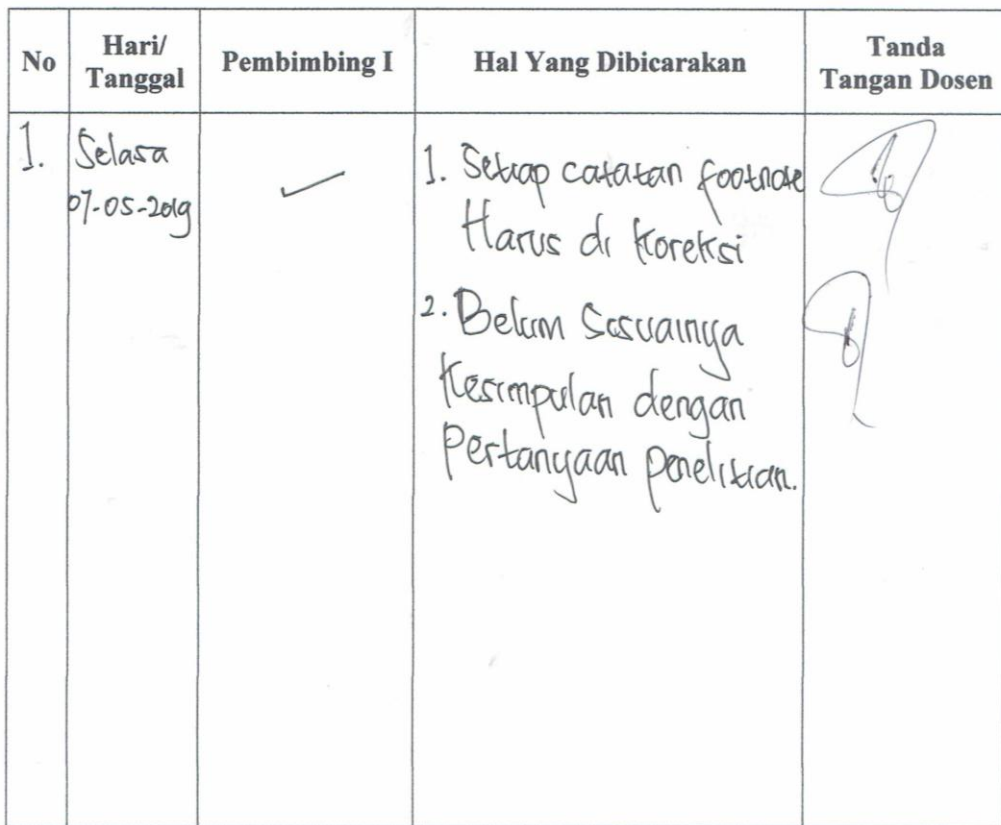 No
Hari/
Tanggal
Pembimbing I
Hal Yang Dibicarakan
Tanda
Tangan Dosen
1.
Selasa
07-05-2019
1. Setiap catatan footnote
Harus di koreksi
2. Belum Sesuainya
Kesimpulan dengan
Pertanyaan penelitian.